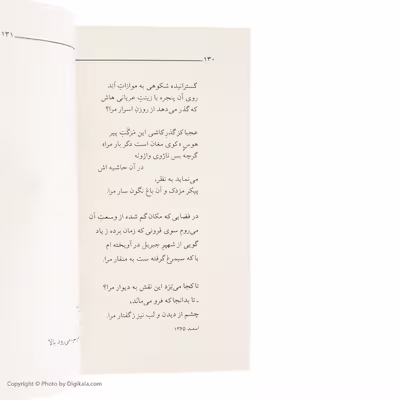 ۱۳۱
۱۳۰
گسترانیده شکوهی به موازاتِ اَبَد
روی آن پنجره با زینتِ عریانی هاش
که گذر می‌دهد از روزنِ اسرار مرا؟
عجبا کز گذر کاشی این مَزگَتِ پیر
هوسِ «کوی مغان است دگر بار مرا»
گرچه بس ناژوی واژونه
در آن حاشیه اش
می‌نماید به نظر،
پیکر مزدک و آن باغِ نگون سار مرا.
در فضایی که مکان گم شده از وسعتِ آن
می‌روم سوی قرونی که زمان برده ز یاد
گویی از شهپر جبریل در آویخته ام
یا که سیمرغ گرفته ست به منقار مرا.
تا کجا می‌بَرَد این نقش به دیوار مرا؟
ـ تا بدانجا که فرو می‌مانَد،
چشم از دیدن و لب نیز ز گفتار مرا.
اسفند ۱۳۶۵
می‌رود بالا
Copyright © Photo by Digikala.com